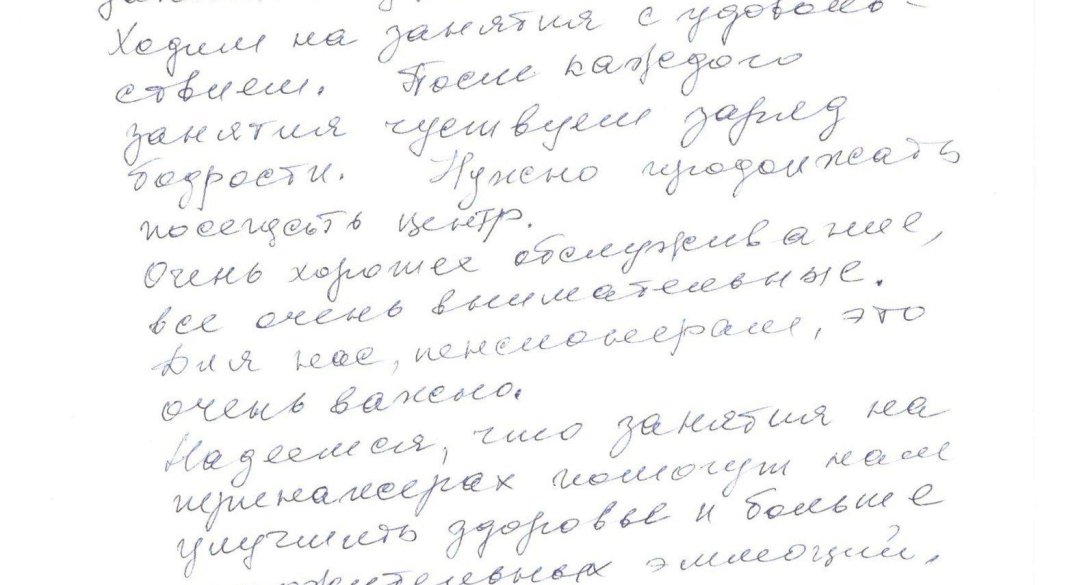 Ходим на занятия с удоволь-
ствием. После каждого
занятия чуствуем заряд
бодрости. Нужно продолжать
посещать центр.
Очень хорошее обслуживание,
все очень внимательные.
Для нас, пенсионерам, это
очень важно.
Надеемся, что занятия на
тренажерах помогут нам
улучшить здоровье и больше
эммоций.